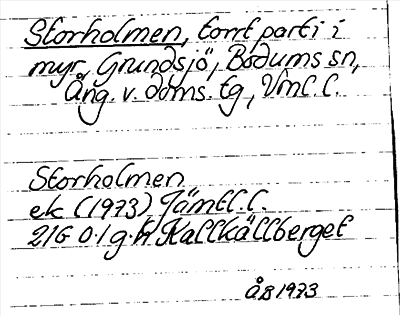 Storholmen, torrt parti i
myr, Grundsjö, Bodums sn,
Ång. v. doms. tg, Vnl. l.
Storholmen
ek (1973) Jämtl. l.
21G 0-1 g-h Kallkällberget
ÅB 1973